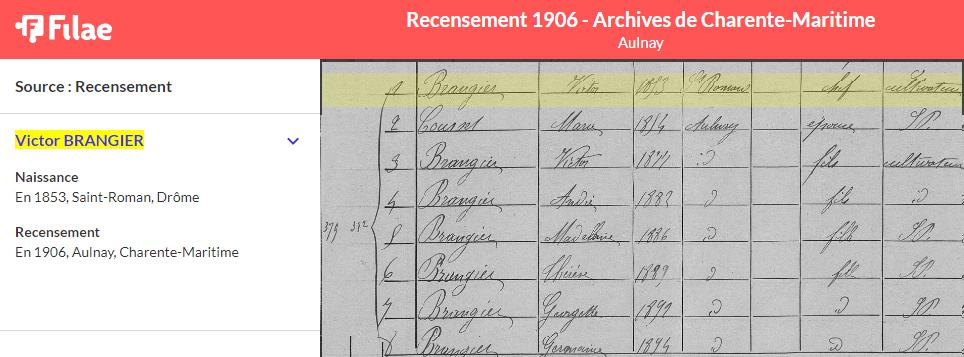 Filae
Recensement 1906 - Archives de Charente-Maritime
Aulnay
Source : Recensement
Victor BRANGIER
Naissance
En 1853, Saint-Roman, Drôme
Recensement
En 1906, Aulnay, Charente-Maritime
1 Brangier Victor 1853 St Romans chef cultivateur
2 Marie Aulnay épouse
3 Brangier Victor fils cultivateur
Brangier André fils
Brangier Madeleine 1886 fille
6 Brangier 1889
Brangier Georgette
Brangier Germaine 1894